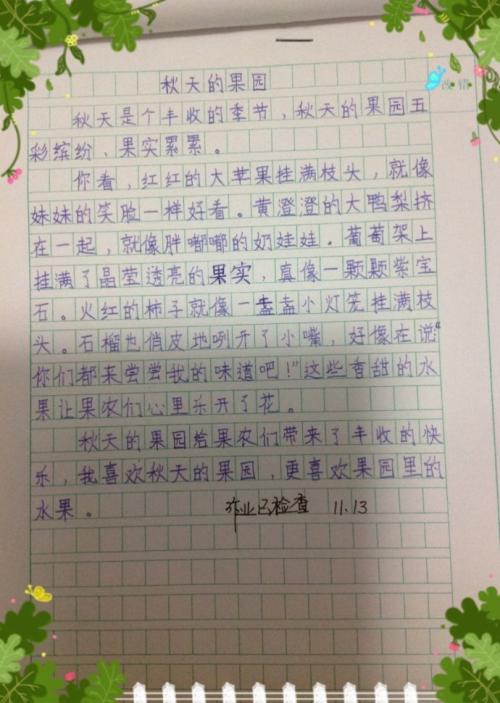 秋天的果园
秋天是个丰收的季节，秋天的果园五
彩缤纷，果实累累。
你看，红红的大苹果挂满枝头，就像
妹妹的笑脸一样好看。黄澄澄的大鸭梨挤
在一起，就像胖嘟嘟的奶娃娃。葡萄架上
挂满了晶莹透亮的果实，真像一颗颗紫宝
石。火红的柿子就像一盏盏小灯笼挂满枝
头。石榴也俏皮地咧开了小嘴，好像在说“
你们都来尝尝我的味道吧！”这些香甜的水
果让果农们心里乐开了花。
秋天的果园给果农们带来了丰收的快
乐，我喜欢秋天的果园，更喜欢果园里的
水果。
作业已检查 11.13